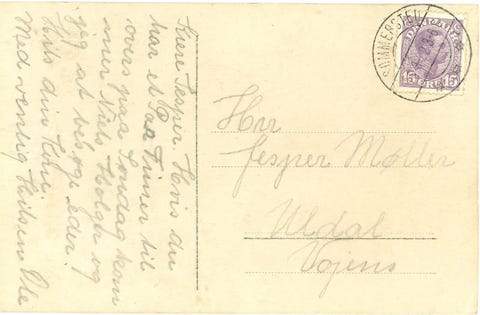 Kære Jesper. Hvis du
har et Par Timer til
overs paa Søndag kom
mer Niels Holger og
jeg at besøge eder.
Hils din Kone
Med venlig Hilsen Ole
SOMMERSTED
DANMARK
15 ØRE 15
Hrr
Jesper Møller
Uldal
Vojens